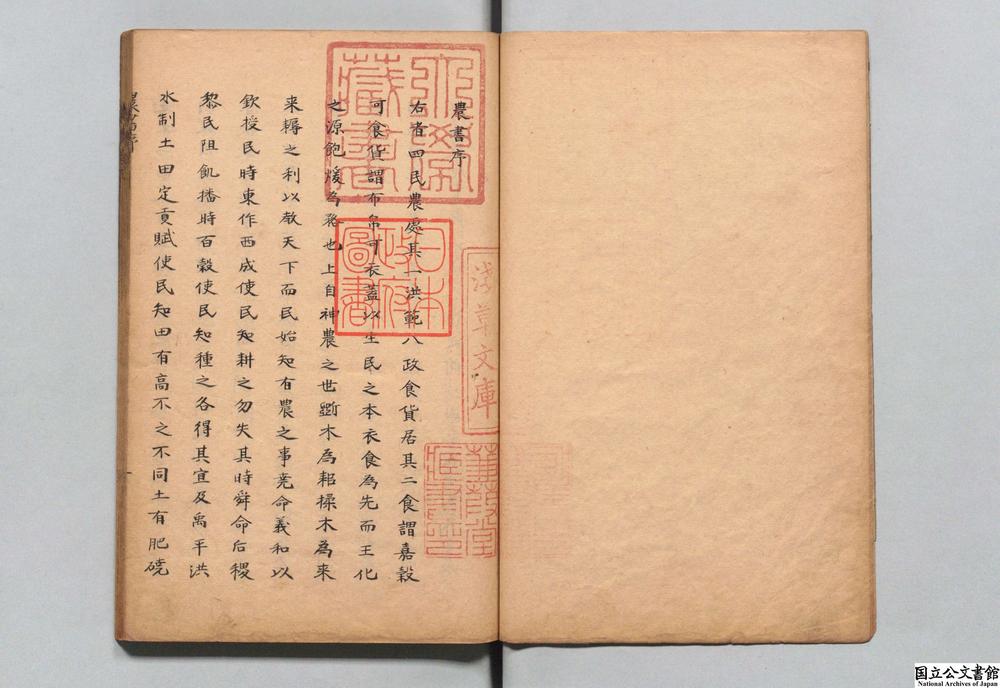 農書序
右者四民農處其一洪範八政食貨居其二食謂嘉穀
可食貨謂布帛可衣蓋以生民之本衣食為先而王化
之源飽煖為務也上自神農之世斲木為耜揉木為来
来耨之利以敎天下而民始知有農之事尭命義和以
欽授民時東作西成使民知耕之勿失其時舜命后稷
黎民阻飢播時百穀使民知種之各得其宜及禹平洪
水制土田定貢賦使民知田有高不之不同土有肥磽
農書序
日本
政府
圖書
淺草文庫
蒹葭堂
藏書印
国立公文書館
National Archives of Japan